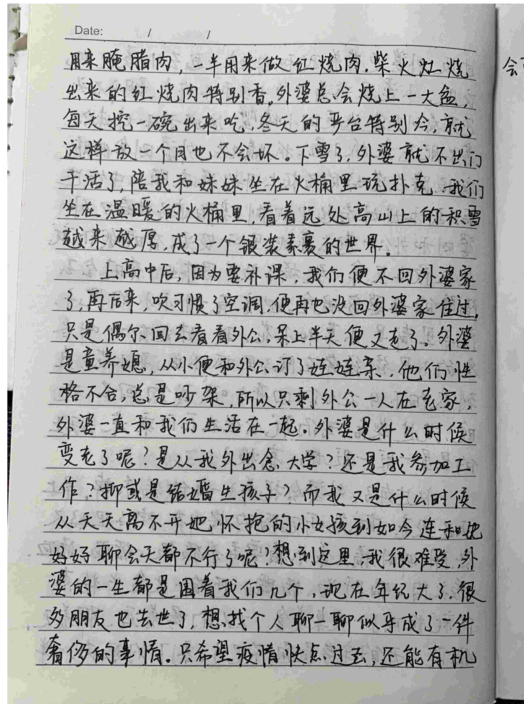 Date: / /
用来腌腊肉，一半用来做红烧肉。柴火灶烧
会
出来的红烧肉特别香。外婆总会烧上一大盆，
每天挖一碗出来吃。冬天的乡台特别冷，就
这样放一个月也不会坏。下雪了，外婆就不出门
干活了，陪我和妹妹坐在火桶里玩扑克。我们
坐在温暖的火桶里，看着远处高山上的积雪
越来越厚，成了一个银装素裹的世界。
上高中后，因为要补课，我们便不回外婆家
了，再后来，吹习惯了空调，便再也没回外婆家住过，
只是偶尔回去看看外公，呆上半天便又走了。外婆
是童养媳，从小便和外公订了娃娃亲，他们性
格不合，总是吵架，所以只剩外公一人在老家，
外婆一直和我们生活在一起。外婆是什么时候
变老了呢？是从我外出念大学？还是我参加工
作？抑或是结婚生孩子？而我又是什么时候
从天天离不开她怀抱的小女孩到如今连和她
好好聊会天都不行了呢！想到这里，我很难受，外
婆的一生都是围着我们几个，现在年纪大了，很
多朋友也去世了，想找个人聊一聊似乎成了一件
奢侈的事情。只希望疫情快点过去，还能有机